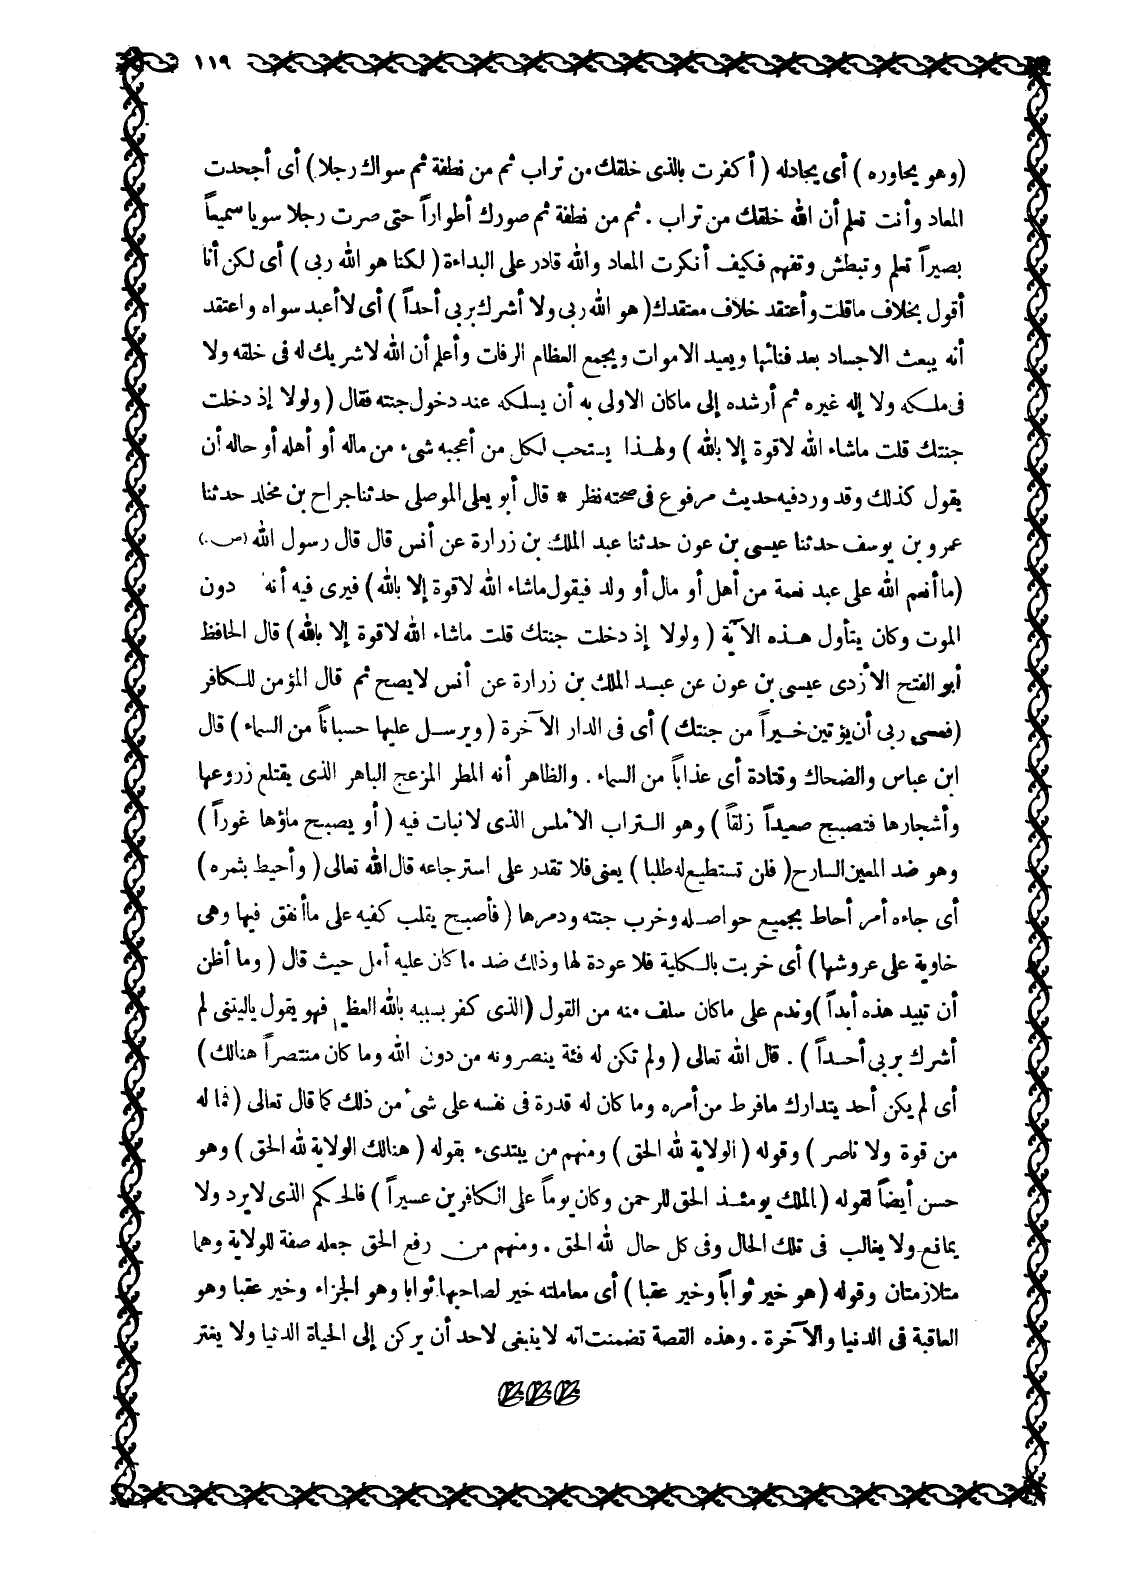 ١١٩
(وهو يحاوره) أى يجادله (أكفرت بالذى خلقك من تراب ثم من نطفة ثم سواك رجلا) أى أجحدت
المعاد وأنت تعلم أن الله خلقك من تراب . ثم من نطفة ثم صورك أطواراً حتى صرت رجلا سويا سميعاً
بصيراً تعلم وتبطش وتفهم فكيف أنكرت المعاد والله قادر على البداءة (لكنا هو الله ربى) أى لكن أنا
أقول بخلاف ماقلت وأعتقد خلاف معتقدك (هو الله ربى ولا أشرك بربى أحداً) أى لا أعبد سواه واعتقد
أنه يبعث الاجساد بعد فنائها ويعيد الاموات ويجمع العظام الرفات وأعلم أن الله لاشريك له فى خلقه ولا
فى ملكه ولا إله غيره ثم أرشده إلى ماكان الاولى به أن يسلكه عند دخول جنته فقال (ولولا إذ دخلت
جنتك قلت ماشاء الله لاقوة إلا بالله) ولهذا يستحب لكل من أعجبه شىء من ماله أو أهله أو حاله أن
يقول كذلك وقد ورد فيه حديث مرفوع فى صحته نظر * قال أبو يعلى الموصلى حدثنا جراح بن مخلد حدثنا
عمرو بن يوسف حدثنا عيسى بن عون حدثنا عبد الملك بن زرارة عن أنس قال قال رسول الله (ص.)
(ما أنعم الله على عبد نعمة من أهل أو مال أو ولد فيقول ماشاء الله لاقوة إلا بالله) فيرى فيه أنه دون
الموت وكان يتأول هذه الآية (ولولا إذ دخلت جنتك قلت ماشاء الله لاقوة إلا بالله) قال الحافظ
أبو الفتح الأزدى عيسى بن عون عن عبد الملك بن زرارة عن أنس لا يصح ثم قال المؤمن للكافر
(فعسى ربى أن يؤتين خيراً من جنتك) أى فى الدار الآخرة (ويرسل عليها حسباناً من السماء) قال
ابن عباس والضحاك وقتادة أى عذاباً من السماء . والظاهر أنه المطر المزعج الباهر الذى يقتلع زروعها
وأشجارها فتصبح صعيداً زلقاً) وهو التراب الأملس الذى لانبات فيه (أو يصبح ماؤها غوراً)
وهو ضد المعين السارح (فلن تستطيع له طلبا) يعنى فلا تقدر على استرجاعه قال الله تعالى (وأحيط بثمره)
أى جاءه أمر أحاط بجميع حواصله وخرب جنته ودمرها (فأصبح يقلب كفيه على ما أنفق فيها وهى
خاوية على عروشها) أى خربت بالكلية فلا عودة لها وذلك ضد ما كان عليه أمل حيث قال (وما أظن
أن تبيد هذه أبداً) وندم على ماكان سلف منه من القول (الذى كفر بسببه بالله العظيم فهو يقول ياليتنى لم
أشرك بربى أحداً) . قال الله تعالى (ولم تكن له فئة ينصرونه من دون الله وما كان منتصراً هنالك)
أى لم يكن أحد يتدارك مافرط من أمره وما كان له قدرة فى نفسه على شىء من ذلك كما قال تعالى (فما له
من قوة ولا ناصر) وقوله (الولاية لله الحق) ومنهم من يبتدىء بقوله (هنالك الولاية لله الحق) وهو
حسن أيضاً لقوله (الملك يومئذ الحق للرحمن وكان يوماً على الكافرين عسيراً) فالحكم الذى لايرد ولا
يمانع ولا يغالب فى تلك الحال وفى كل حال لله الحق . ومنهم من رفع الحق جعله صفة للولاية وهما
متلازمتان وقوله (هو خير ثواباً وخير عقبا) أى معاملته خير لصاحبها ثوابا وهو الجزاء وخير عقبا وهو
العاقبة فى الدنيا والآخرة . وهذه القصة تضمنت انه لاينبغى لاحد أن يركن إلى الحياة الدنيا ولا يغتر